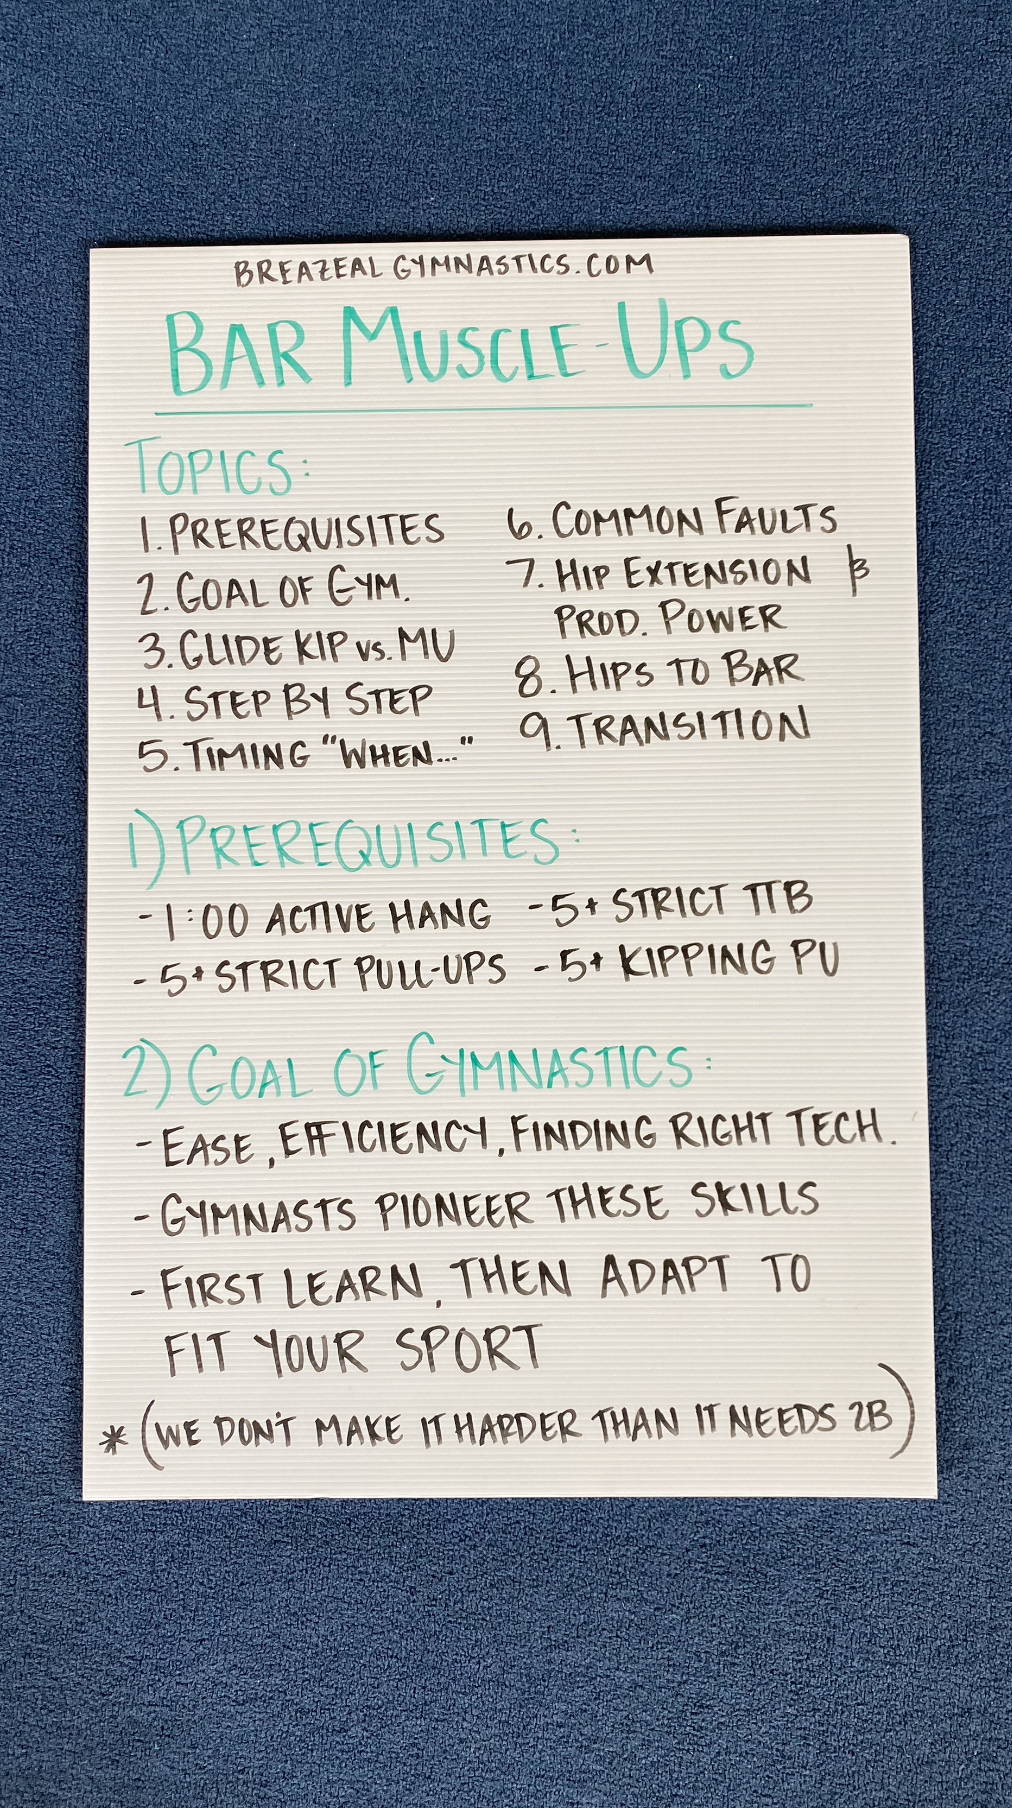 BREAZEAL GYMNASTICS.COM
BAR MUSCLE-UPS
TOPICS:
1. PREREQUISITES
2. GOAL OF GYM.
3. GLIDE KIP vs. MU
4. STEP BY STEP
5. TIMING "WHEN..."
6. COMMON FAULTS
7. HIP EXTENSION &
PROD. POWER
8. HIPS TO BAR
9. TRANSITION
1) PREREQUISITES:
- 1:00 ACTIVE HANG - 5+ STRICT TTB
- 5+ STRICT PULL-UPS - 5+ KIPPING PU
2) GOAL OF GYMNASTICS:
- EASE, EFFICIENCY, FINDING RIGHT TECH.
- GYMNASTS PIONEER THESE SKILLS
- FIRST LEARN, THEN ADAPT TO
FIT YOUR SPORT
* (WE DON'T MAKE IT HARDER THAN IT NEEDS 2B)